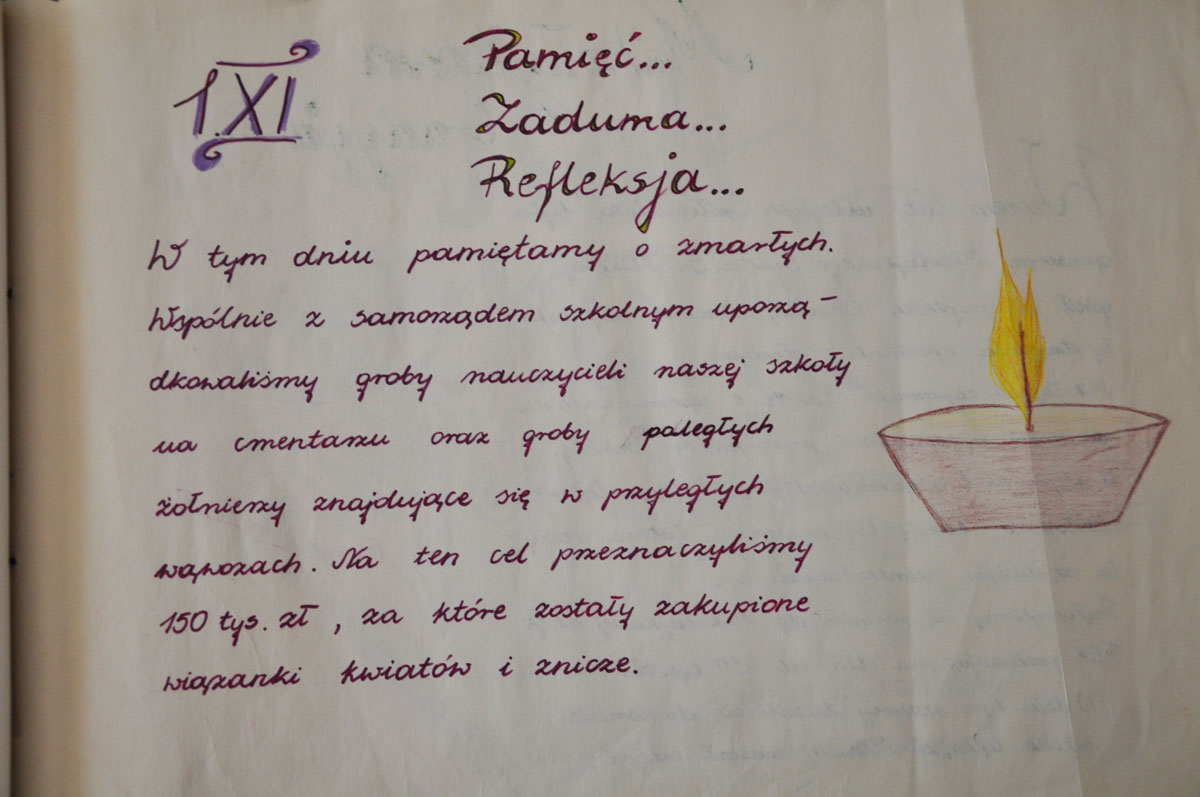 1.XI
Pamięć...
Zaduma...
Refleksja...
W tym dniu pamiętamy o zmarłych.
Wspólnie z samorządem szkolnym uporzą-
dkowaliśmy groby nauczycieli naszej szkoły
na cmentarzu oraz groby poległych
żołnierzy znajdujące się w przyległych
wąwozach. Na ten cel przeznaczyliśmy
150 tys. zł, za które zostały zakupione
wiązanki kwiatów i znicze.